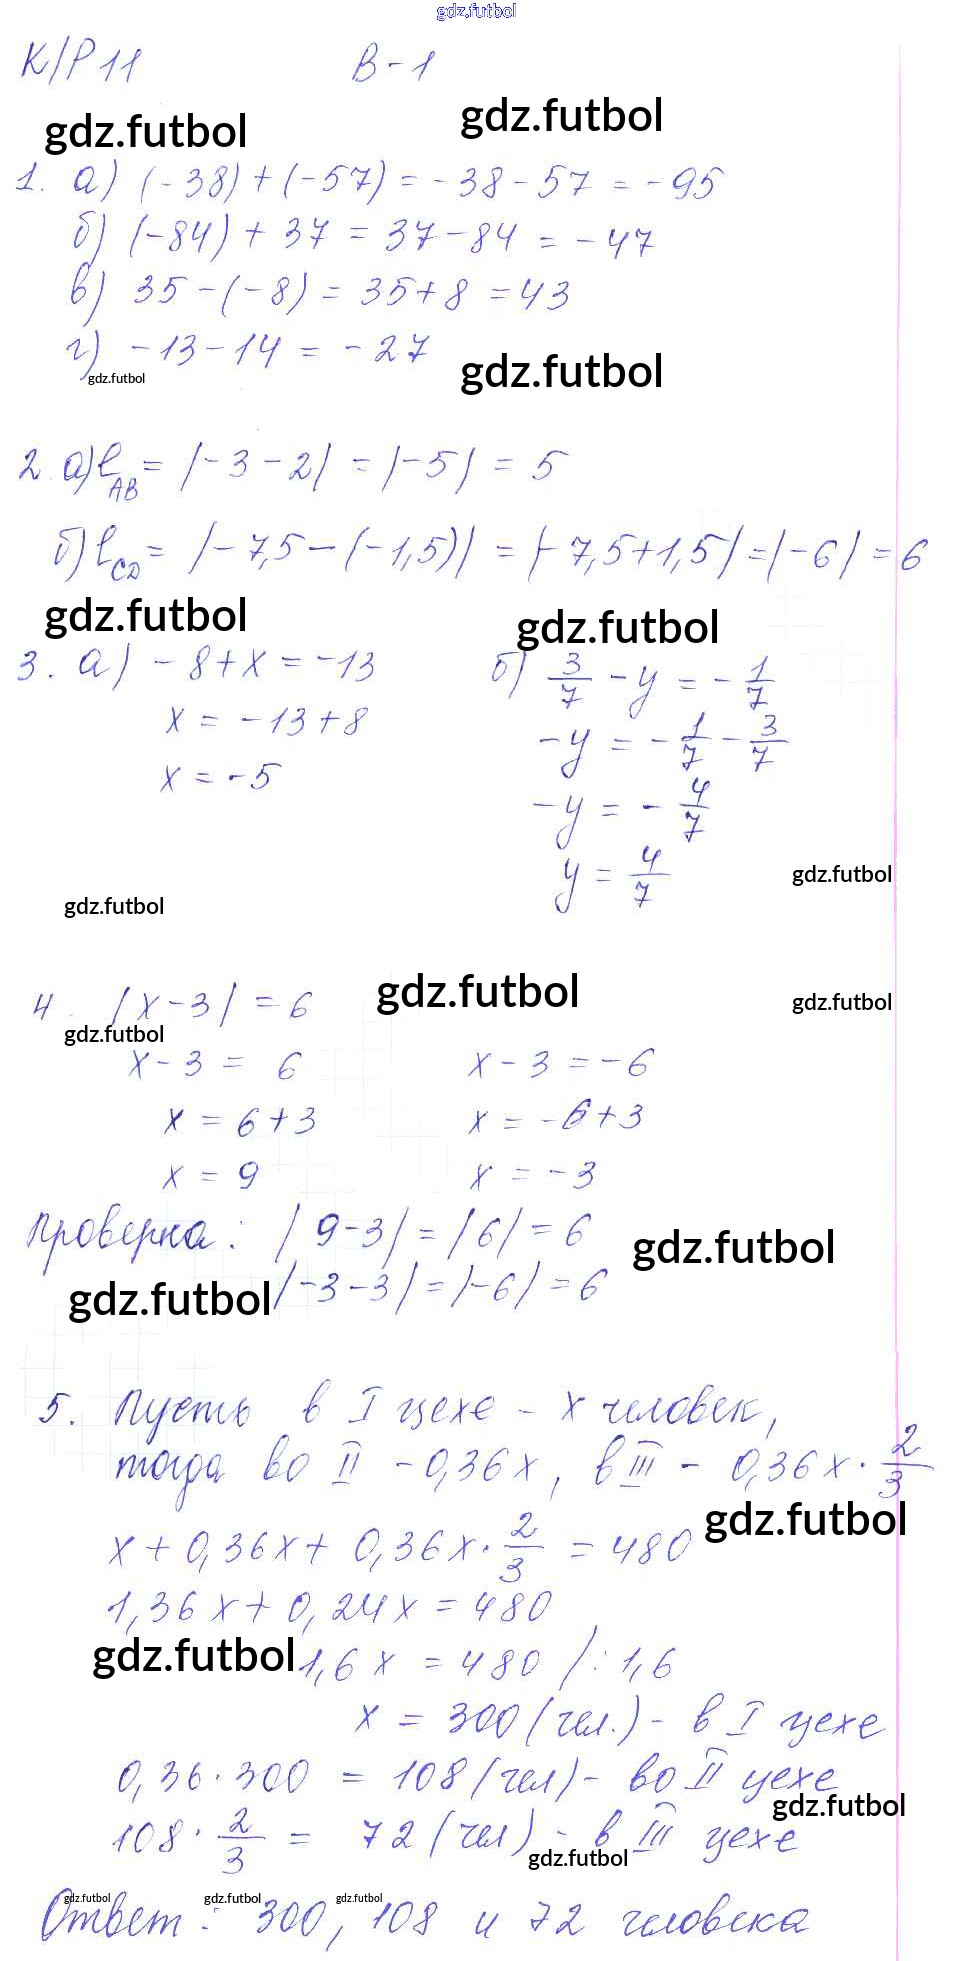 gdz.futbol
К/Р 11 В-1
gdz.futbol gdz.futbol
1. а) (-38) + (-57) = -38 - 57 = -95
б) (-84) + 37 = 37 - 84 = -47
в) 35 - (-8) = 35 + 8 = 43
г) -13 - 14 = -27
gdz.futbol gdz.futbol
2. а) l_AB = |-3 - 2| = |-5| = 5
б) l_CD = |-7,5 - (-1,5)| = |-7,5 + 1,5| = |-6| = 6
gdz.futbol gdz.futbol
3. а) -8 + x = -13
x = -13 + 8
x = -5
б) 3/7 - y = -1/7
-y = -1/7 - 3/7
-y = -4/7
y = 4/7
gdz.futbol gdz.futbol
4. |x - 3| = 6 gdz.futbol gdz.futbol
gdz.futbol
x - 3 = 6 x - 3 = -6
x = 6 + 3 x = -6 + 3
x = 9 x = -3
Проверка: |9 - 3| = |6| = 6
gdz.futbol
gdz.futbol |-3 - 3| = |-6| = 6
5. Пусть в I цехе - x человек,
тогда во II - 0,36x, в III - 0,36x · 2/3
gdz.futbol
x + 0,36x + 0,36x · 2/3 = 480
1,36x + 0,24x = 480
gdz.futbol 1,6x = 480 /: 1,6
x = 300 (чел.) - в I цехе
0,36 · 300 = 108 (чел) - во II цехе
gdz.futbol
108 · 2/3 = 72 (чел) - в III цехе
gdz.futbol
gdz.futbol gdz.futbol gdz.futbol
Ответ: 300, 108 и 72 человека